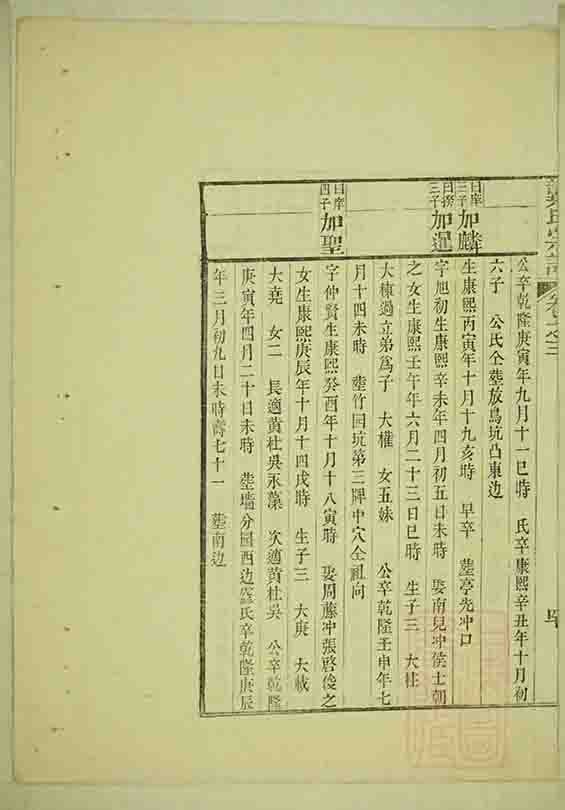 氏宗譜 卷之三
公卒乾隆庚寅年九月十一巳時 氏卒康熙辛丑年十月初
六子 公氏仝塟放鳥坑凸東边
曰庠三子 加麟 生康熙丙寅年十月十九亥時 早卒 塟亭先冲口
三子 加暹 字旭初生康熙辛未年四月初五日未時 娶南兒冲侯士朝
之女生康熙壬午年六月二十三日巳時 生子三 大柱
大棟過立弟爲子 大權 女五妹 公卒乾隆壬申年七
月十四未時 塟竹園坑第三牌中穴仝祖向
曰庠四子 加聖 字仲賢生康熙癸酉年十月十八寅時 娶周藤冲張啓俊之
女生康熙庚辰年十月十四戌時 生子三 大庚 大載
大堯 女二 長適黃杜吳永藻 次適黃杜吳 公卒乾隆
庚寅年四月二十日未時 塟墻分園西边 氏卒乾隆庚辰
年三月初九日未時壽七十一 塟南边